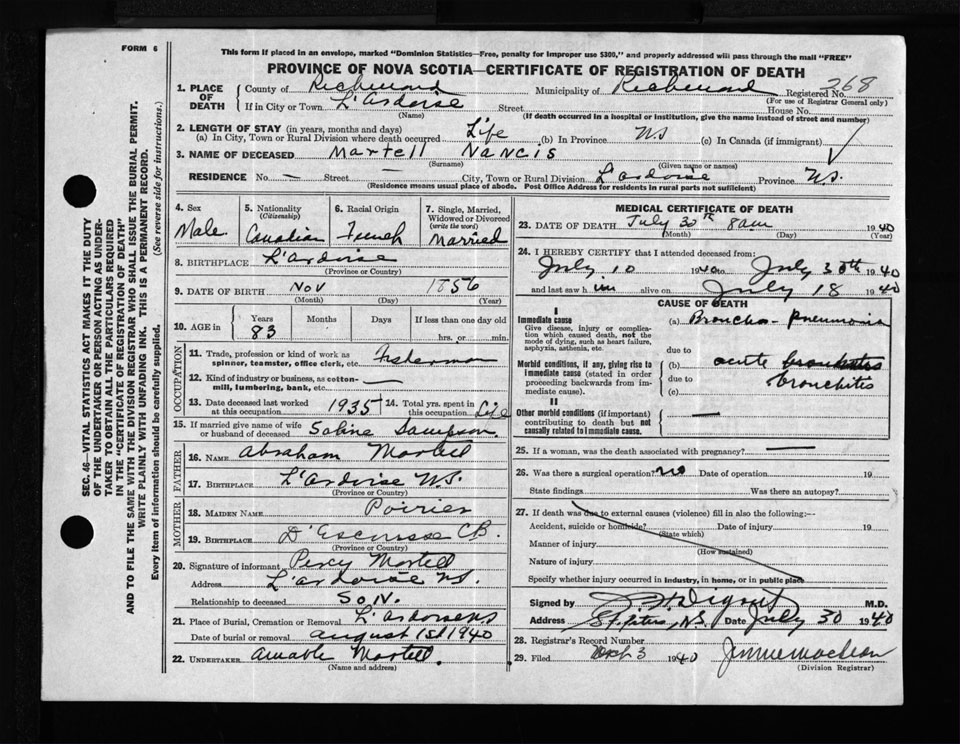 FORM 6
This form if placed in an envelope, marked "Dominion Statistics—Free, penalty for improper use $300," and properly addressed will pass through the mail "FREE"
PROVINCE OF NOVA SCOTIA—CERTIFICATE OF REGISTRATION OF DEATH
1. PLACE OF DEATH County of Richmond Municipality of Richmond Registered No. 268
(For use of Registrar General only)
If in City or Town L'Ardoise Street House No.
(Name) (If death occurred in a hospital or institution, give the name instead of street and number)
2. LENGTH OF STAY (in years, months and days)
(a) In City, Town or Rural Division where death occurred Life (b) In Province NS (c) In Canada (if immigrant)
3. NAME OF DECEASED Martell Narcis
(Surname) (Given name or names)
RESIDENCE No. — Street — City, Town or Rural Division L'Ardoise Province N.S.
(Residence means usual place of abode. Post Office Address for residents in rural parts not sufficient)
4. Sex Male
5. Nationality (Citizenship) Canadian
6. Racial Origin French
7. Single, Married, Widowed or Divorced (write the word) Married
8. BIRTHPLACE L'Ardoise
(Province or Country)
9. DATE OF BIRTH Nov 1856
(Month) (Day) (Year)
10. AGE in Years Months Days If less than one day old
83 hrs. or min.
OCCUPATION
11. Trade, profession or kind of work as spinner, teamster, office clerk, etc. Fisherman
12. Kind of industry or business, as cotton-mill, lumbering, bank, etc. —
13. Date deceased last worked at this occupation 1935
14. Total yrs. spent in this occupation Life
15. If married give name of wife or husband of deceased Sabine Sampson
FATHER
16. NAME Abraham Martell
17. BIRTHPLACE L'Ardoise N.S.
(Province or Country)
MOTHER
18. MAIDEN NAME Poirier
19. BIRTHPLACE D'Escousse C.B.
(Province or Country)
20. Signature of informant Percy Martell
Address L'Ardoise N.S.
Relationship to deceased Son.
21. Place of Burial, Cremation or Removal L'Ardoise
Date of burial or removal August 1st 1940
22. UNDERTAKER Amable Martell.
(Name and address)
MEDICAL CERTIFICATE OF DEATH
23. DATE OF DEATH July 30th 8am 1940
(Month) (Day) (Year)
24. I HEREBY CERTIFY that I attended deceased from:
July 10 1940 to July 30th 1940
and last saw him alive on July 18 1940
CAUSE OF DEATH
I
Immediate cause
Give disease, injury or complication which caused death, not the mode of dying, such as heart failure, asphyxia, asthenia, etc.
(a) Broncho-pneumonia
due to
Morbid conditions, if any, giving rise to immediate cause (stated in order proceeding backwards from immediate cause).
(b) acute
due to bronchitis
(c)
II
Other morbid conditions (if important) contributing to death but not causally related to immediate cause. —
25. If a woman, was the death associated with pregnancy? —
26. Was there a surgical operation? no Date of operation 19
State findings Was there an autopsy?
27. If death was due to external causes (violence) fill in also the following:—
Accident, suicide or homicide? Date of injury 19
(State which)
Manner of injury
(How sustained)
Nature of injury
Specify whether injury occurred in industry, in home, or in public place
Signed by Digout M.D.
Address St. Peters, N.S. Date July 30 1940
28. Registrar's Record Number
29. Filed 3 1940 Jennie MacLean
(Division Registrar)
SEC. 46—VITAL STATISTICS ACT MAKES IT THE DUTY
OF THE UNDERTAKER OR PERSON ACTING AS UNDERTAKER TO OBTAIN ALL THE PARTICULARS REQUIRED
IN THE "CERTIFICATE OF REGISTRATION OF DEATH"
AND TO FILE THE SAME WITH THE DIVISION REGISTRAR WHO SHALL ISSUE THE BURIAL PERMIT.
WRITE PLAINLY WITH UNFADING INK. THIS IS A PERMANENT RECORD.
Every item of information should be carefully supplied. (See reverse side for instructions.)